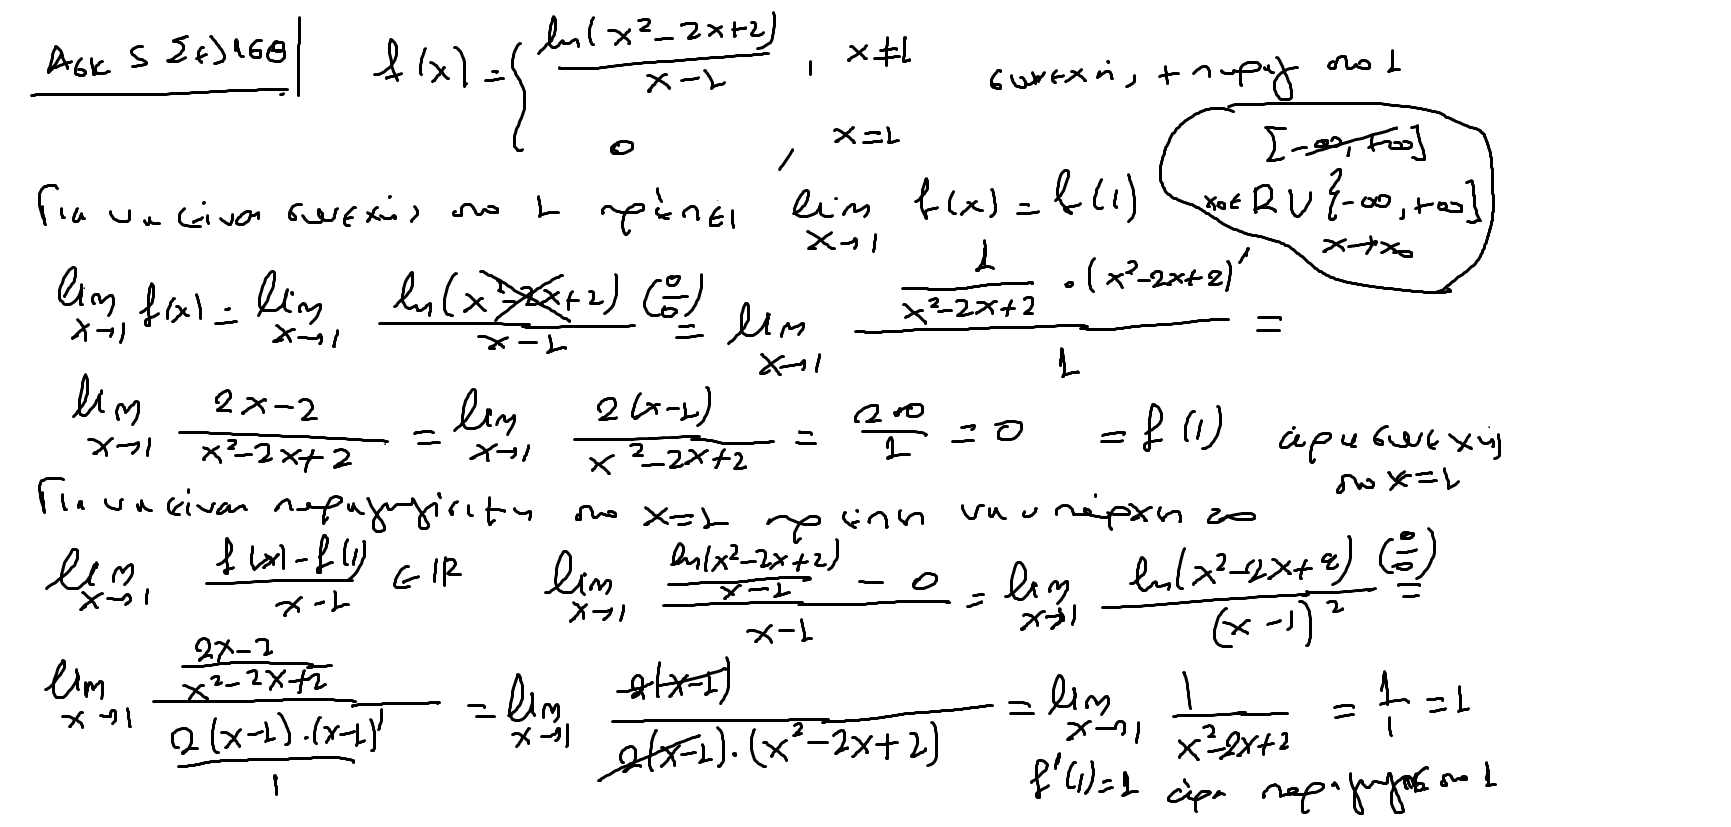 Ασκ 5 Σελ 168 f(x) = { ln(x²-2x+2) / (x-1) , x≠1
0 , x=1
συνεχής, + παραγ στο 1
[-∞, +∞]
x₀∈ R ∪ {-∞, +∞}
x→x₀
Για να είναι συνεχής στο 1 πρέπει lim x→1 f(x) = f(1)
lim x→1 f(x) = lim x→1 ln(x²-2x+2) / (x-1) (0/0) = lim x→1 (1/(x²-2x+2) · (x²-2x+2)') / 1 =
lim x→1 (2x-2) / (x²-2x+2) = lim x→1 2(x-1) / (x²-2x+2) = 2·0 / 1 = 0 = f(1) άρα συνεχής
στο x=1
Για να είναι παραγωγίσιμη στο x=1 πρέπει να υπάρχει το
lim x→1 (f(x)-f(1)) / (x-1) ∈ IR lim x→1 (ln(x²-2x+2)/(x-1) - 0) / (x-1) = lim x→1 ln(x²-2x+2) / (x-1)² (0/0) =
lim x→1 ((2x-2)/(x²-2x+2)) / (2(x-1)·(x-1)' / 1) = lim x→1 2(x-1) / (2(x-1)·(x²-2x+2)) = lim x→1 1 / (x²-2x+2) = 1/1 = 1
f'(1)=1 άρα παραγωγ στο 1